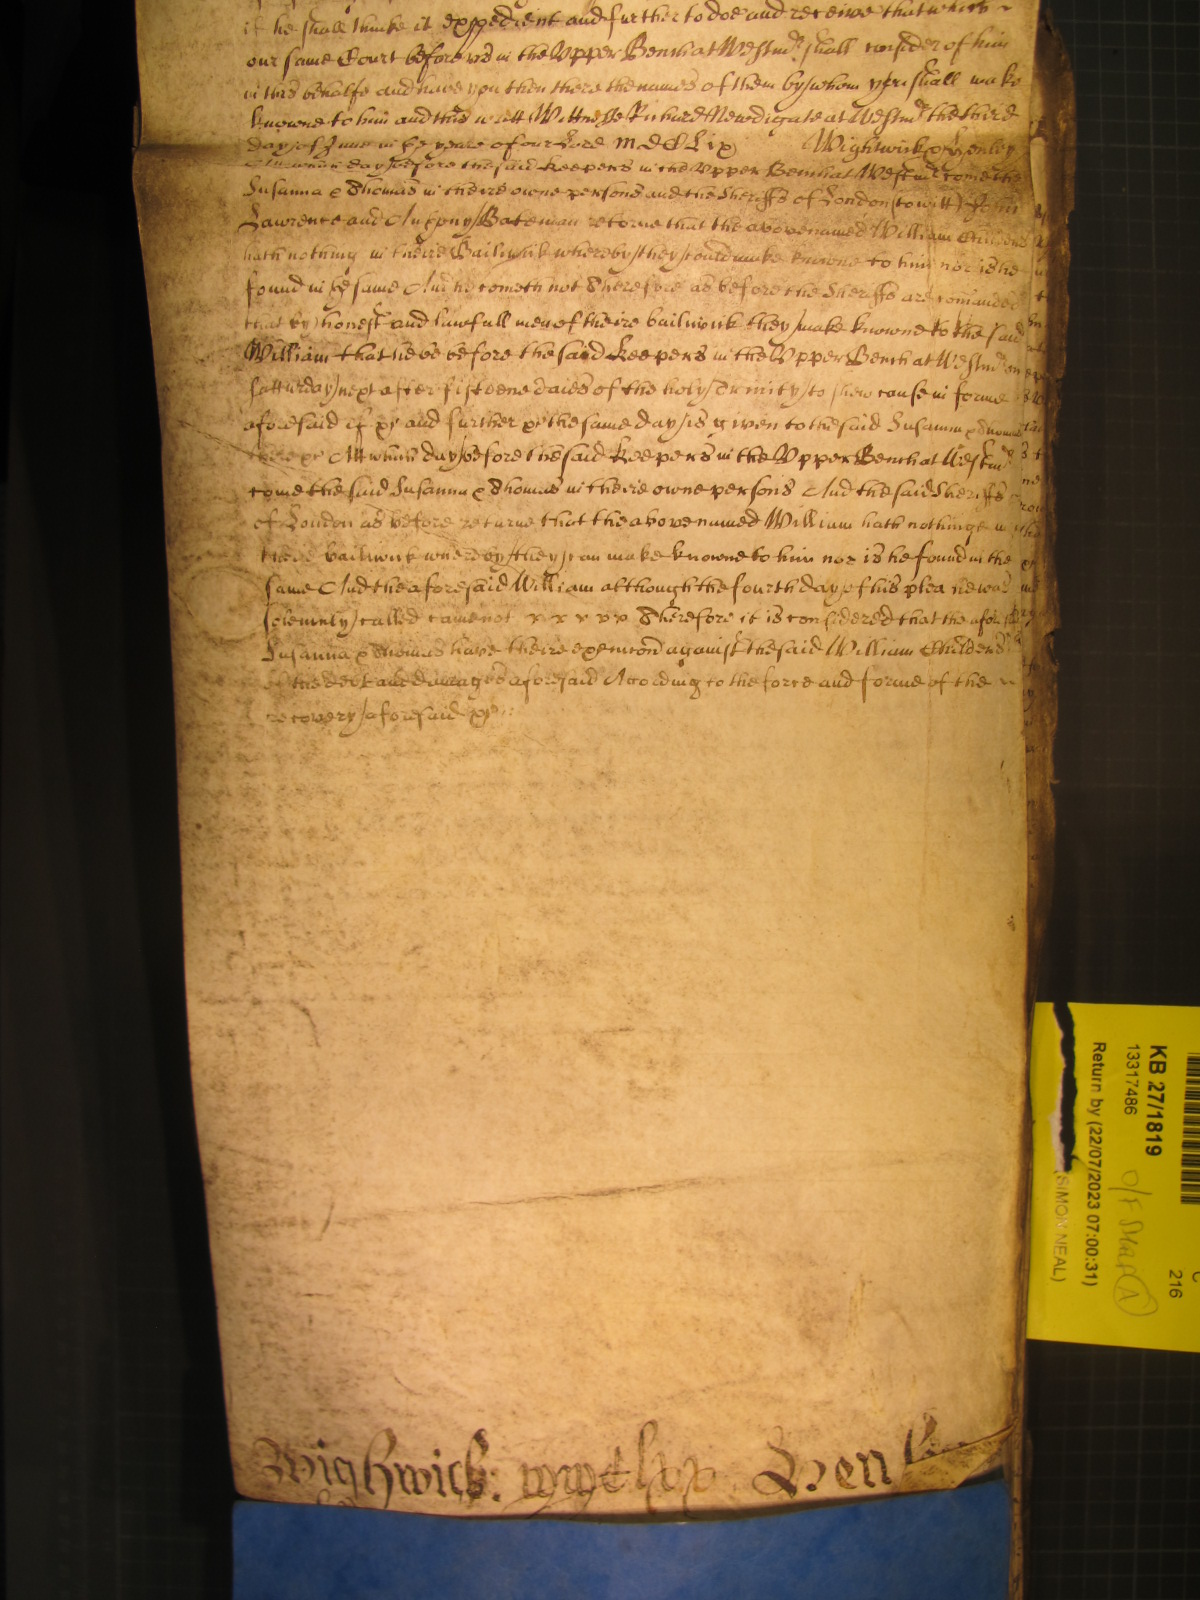 if he shall thinke it expedient and further to doe and receive that which
our same Court before us in the Upper Bench at Westmr shall consider of him
in this behalfe and have you then there the names of them by whom you shall make
knowne to him and this writt Wittnesse Richard Newdigate at Westmr the third
day of June in the yeare of our Lord MDCLix Wightwick & Henley
day before the said Keepers in the Upper Bench at Westmr come the
Susanna & Thomas in theire owne persons and the Sheriffs of London (to witt) John
Lawrence and Antony Bateman retorne that the abovenamed William Childers
hath nothing in theire Bailiwick whereby they could make knowne to him nor is he
found in the same And he cometh not Therefore as before the Sheriffs are comanded
that by honest and lawfull men of theire bailiwick they make knowne to the said
William that he be before the said Keepers in the Upper Bench at Westmr on
satturday next after fifteene daies of the holy Trinity to shew cause in forme
aforesaid if &c and further &c the same day is given to the said Susanna & Thomas
there &c Att which day before the said Keepers in the Upper Bench at Westmr
come the said Susanna & Thomas in theire owne persons And the said Sheriffs
of London as before returne that the abovenamed William hath nothinge in
theire bailiwick whereby they can make knowne to him nor is he found in the
same And the aforesaid William although the fourth day of his plea he was
solemnly called came not Therefore it is considered that the afores
Susanna & Thomas have theire execucion against the said William Childers
of the debt and damages aforesaid According to the force and forme of the
recovery aforesaid &c
Wighwick: Hen
KB 27/1819
13317486
Return by (22/07/2023 07:00:31)
(SIMON NEAL)
216
A